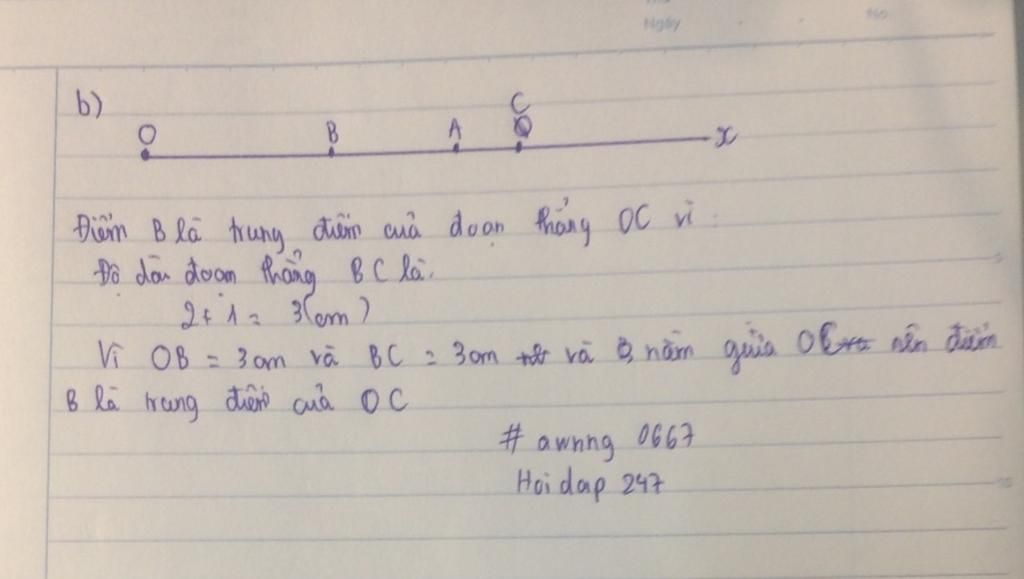 Ngày
No
b)
C
O B A x
Điểm B là trung điểm của đoạn thẳng OC vì:
Độ dài đoạn thẳng BC là:
2 + 1 = 3(cm)
Vì OB = 3cm và BC = 3cm và B nằm giữa OC nên điểm
B là trung điểm của OC
# awnng 0667
Hoidap 247